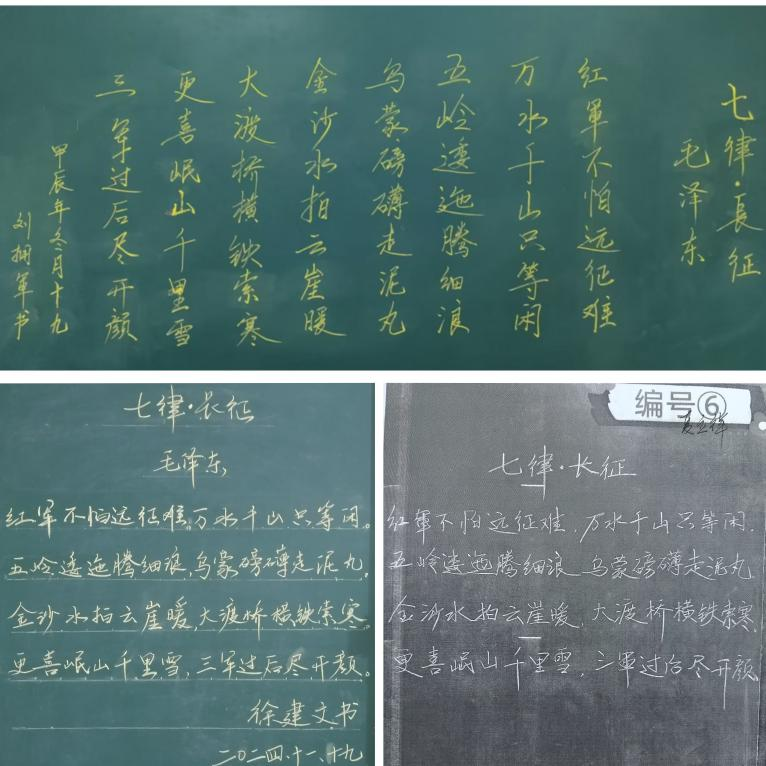 七律·長征
毛泽东
红軍不怕远征难
万水千山只等闲
五岭逶迤腾细浪
乌蒙磅礴走泥丸
金沙水拍云崖暖
大渡桥横铁索寒
更喜岷山千里雪
三军过后尽开颜
甲辰年冬月十九
刘拥軍书
七律·长征
毛泽东
红军不怕远征难,万水千山只等闲。
五岭逶迤腾细浪,乌蒙磅礴走泥丸。
金沙水拍云崖暖,大渡桥横铁索寒。
更喜岷山千里雪,三军过后尽开颜。
徐建文书
二〇二四、十一、十九
编号⑥
七律·长征
红軍不怕远征难,万水千山只等闲.
五岭逶迤腾细浪 乌蒙磅礴走泥丸
金沙水拍云崖暖,大渡桥横铁索寒,
更喜岷山千里雪,三軍过后尽开颜